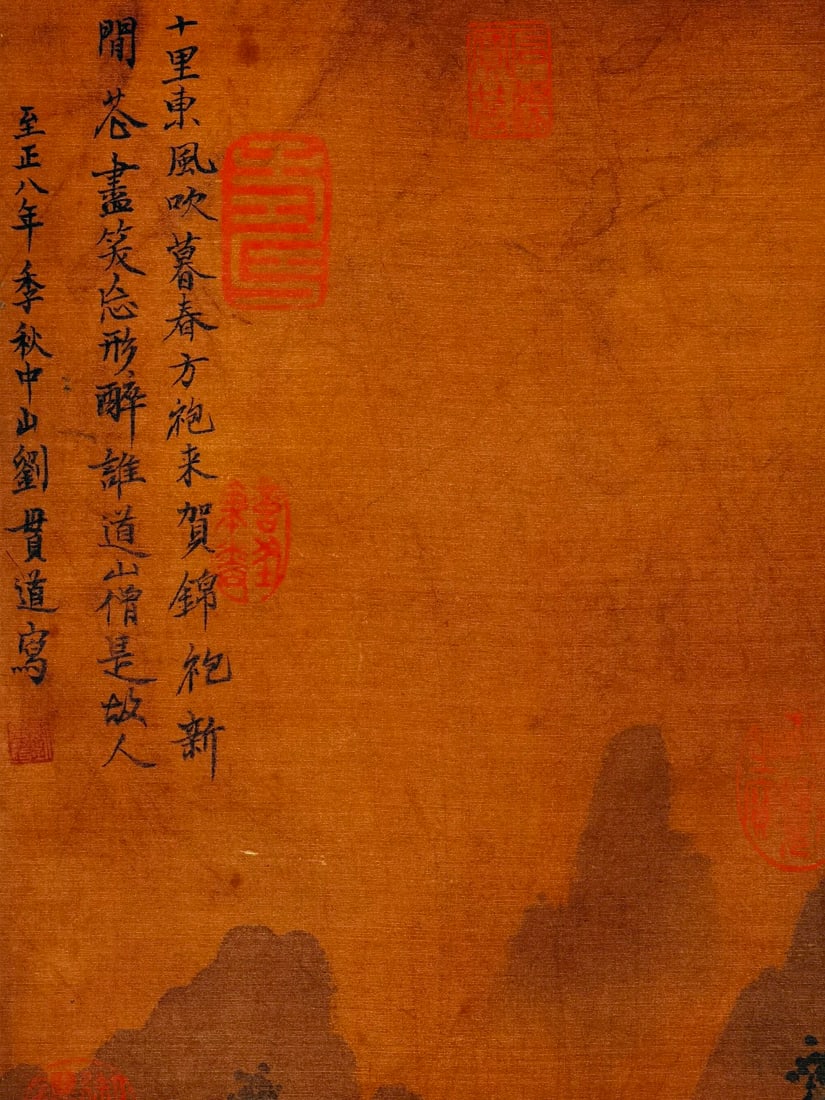 十里東風吹暮春方袍来賀錦袍新
間花盡笑忘形醉誰道山僧是故人
至正八年季秋中山劉貫道寫